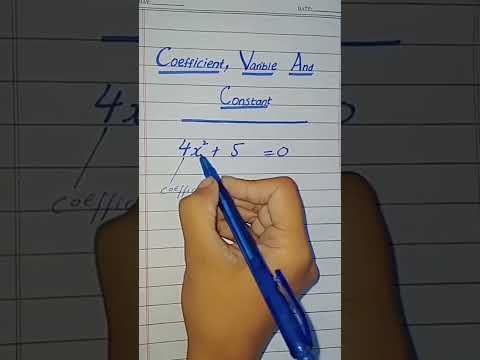 Coefficient, Varible And
Constant
4x² + 5 = 0
coeffic